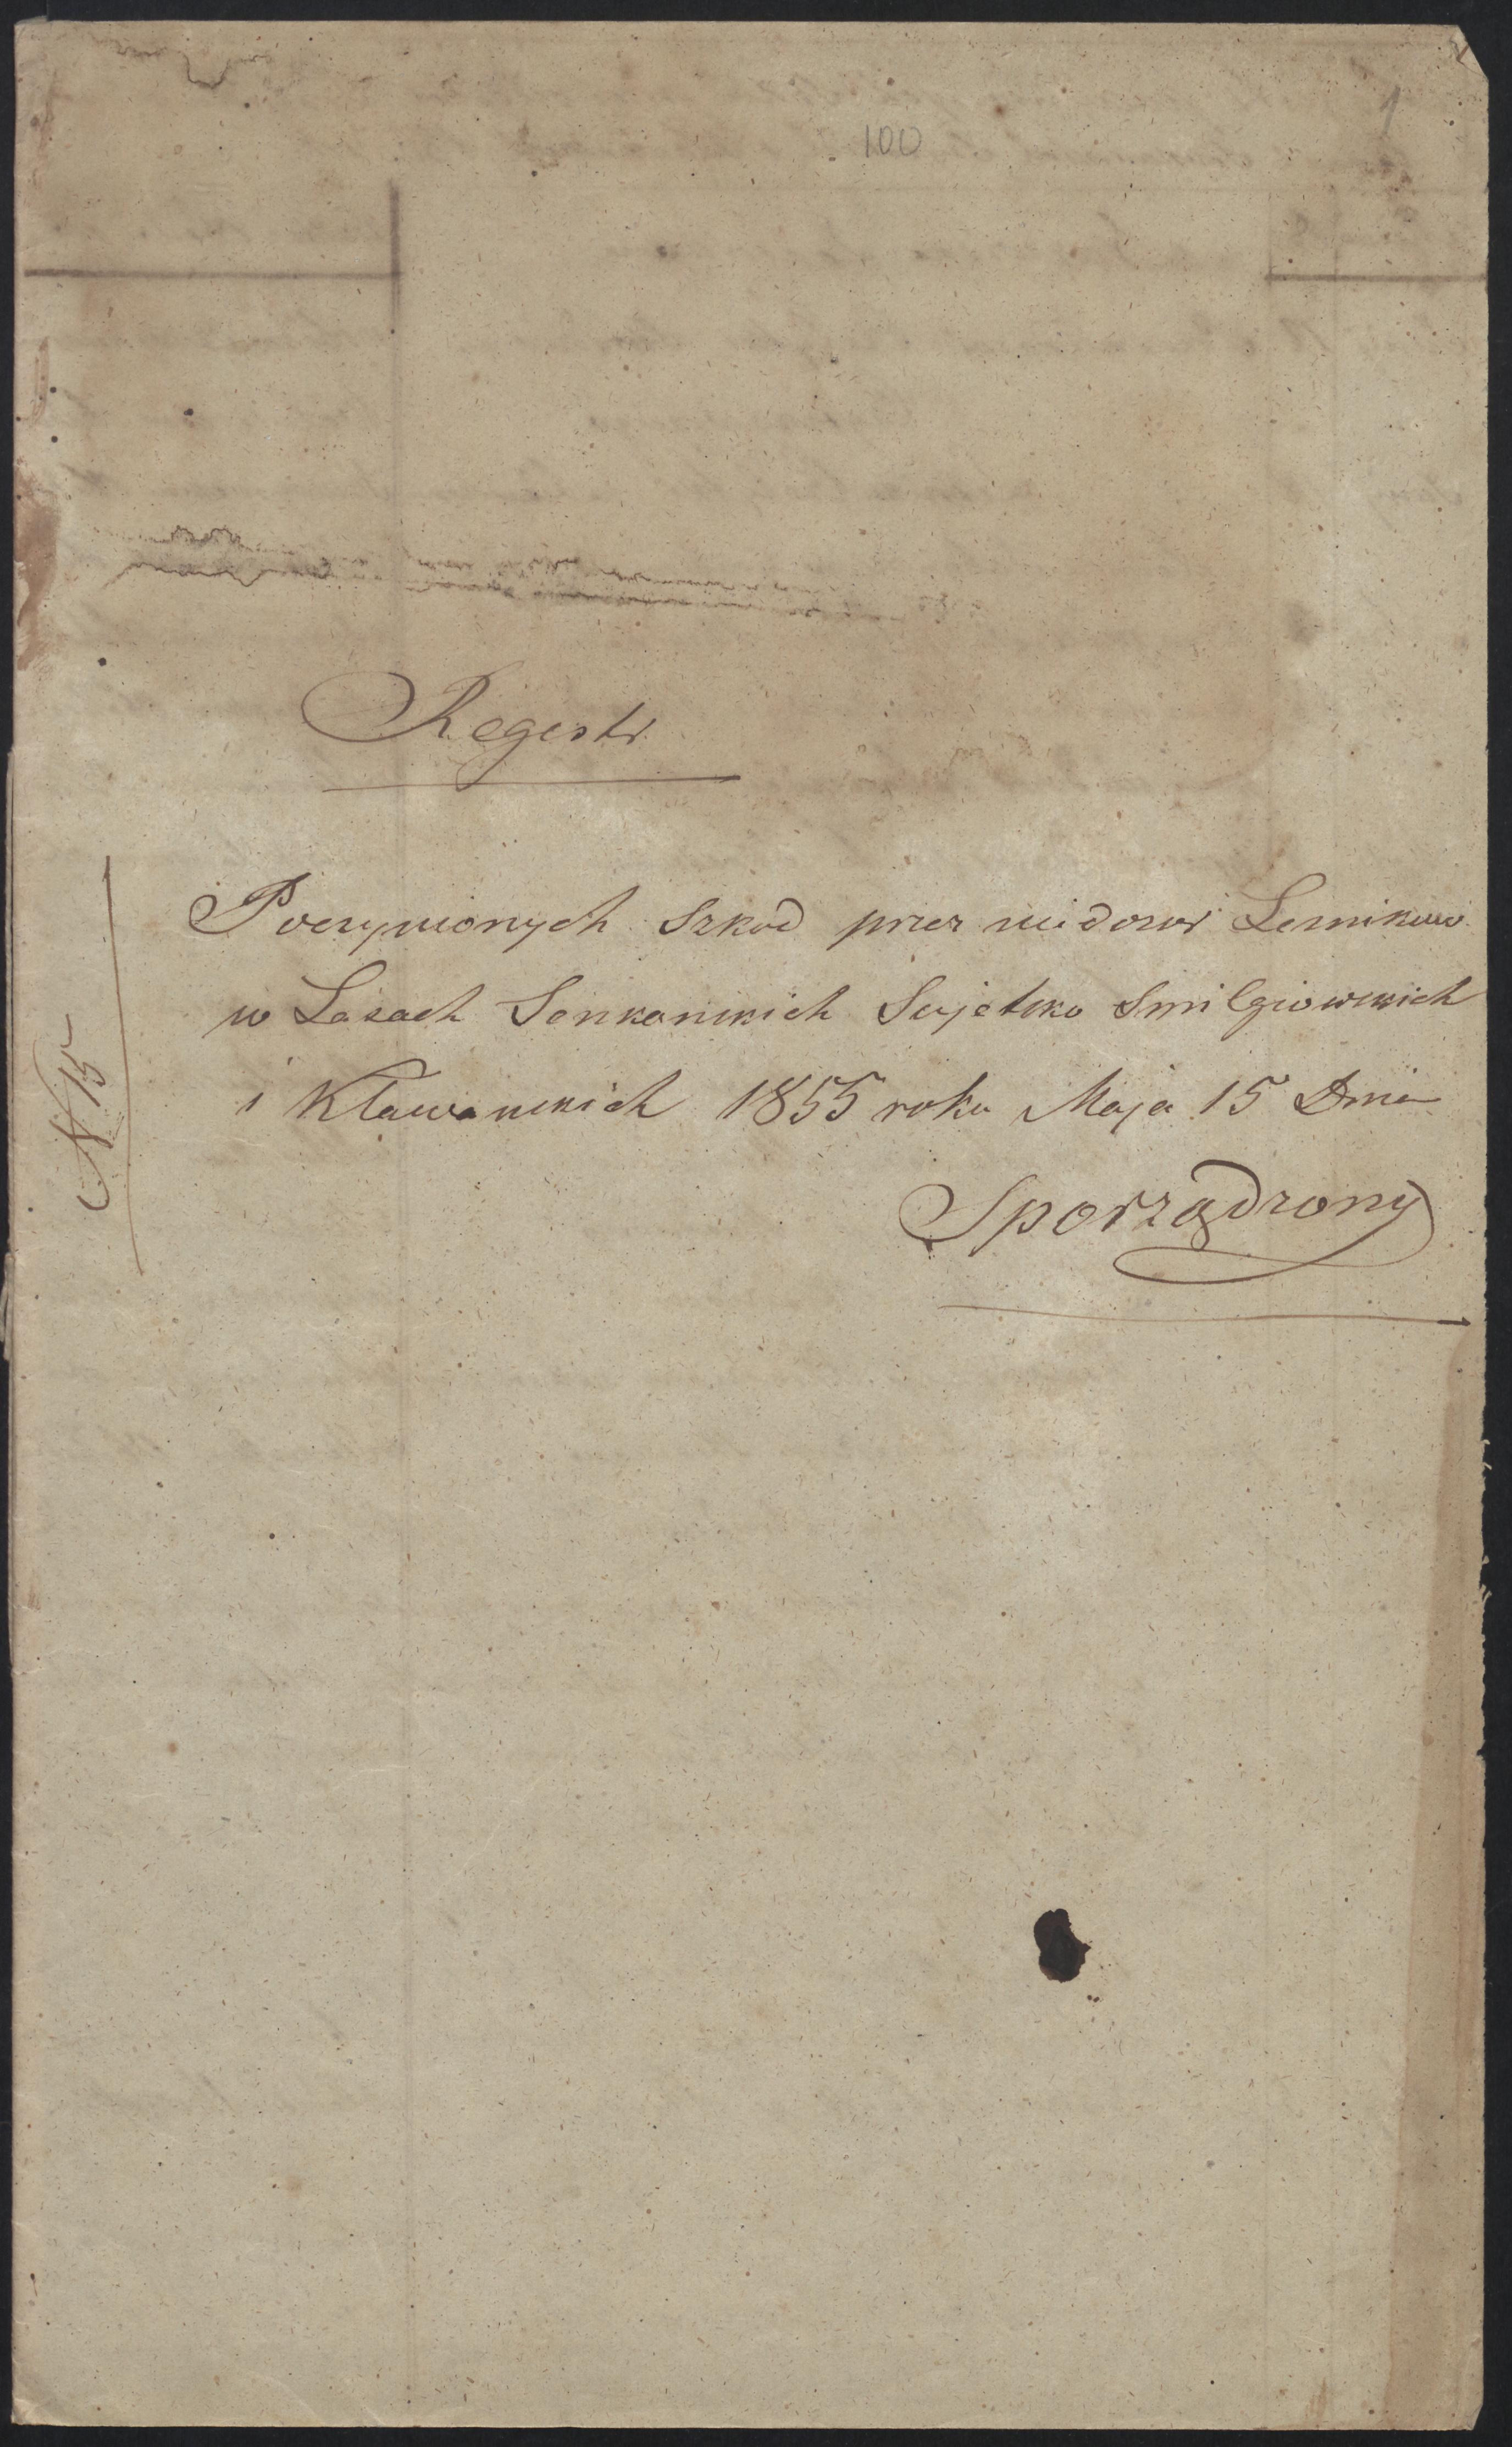 1
100
Regestr
Poczynionych Szkod przez niedozor Lesnikow
w Lasach Sonkanskich Smilgiowskich
i Kławanskich 1855 roku Maja 15 Dnia
Sporządzony
N 15